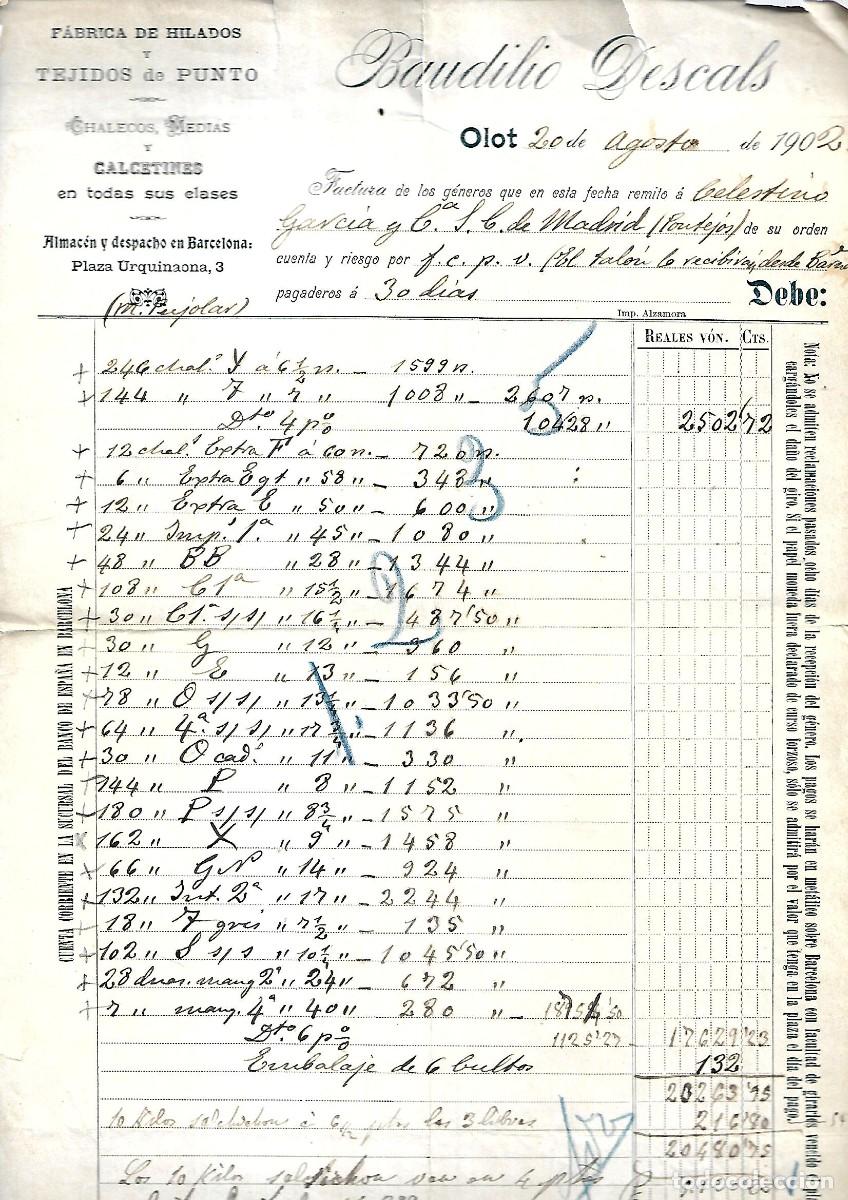 FÁBRICA DE HILADOS
Y
TEJIDOS de PUNTO
CHALECOS, MEDIAS
Y
CALCETINES
en todas sus clases
Almacén y despacho en Barcelona:
Plaza Urquinaona, 3
(M. Pujolar)
Baudilio Descals
Olot 20 de Agosto de 1902
Factura de los géneros que en esta fecha remito á Celestino
García y Cª S. C. de Madrid (Pontejos) de su orden
cuenta y riesgo por f. c. p. v. (El talón lo recibirán desde
pagaderos á 30 dias Debe:
Imp. Alzamora
REALES VÓN. CTS.
246 chal.s Y á 6 1/2 rs. — 1599 rs.
144 " 7 " 7 " 1008 " — 2607 rs.
Dto 4 p% 104'28 " 2502'72
12 chal.s Extra F á 60 rs. — 720 rs.
6 " Extra Egt " 58 " — 348 "
12 " Extra E " 50 " — 600 "
24 " Imp.l 1ª " 45 " — 1080 "
48 " BB " 28 " — 1344 "
108 " C1ª " 15 1/2 " — 1674 "
30 " C1ª s/s/ " 16 1/4 " — 487'50 "
30 " G " 12 " — 360 "
12 " E " 13 " — 156 "
78 " O s/s/ " 13 1/4 " — 1033'50 "
64 " 4ª s/s/ " 17 3/4 " — 1136 "
30 " O cad.s " 11 " — 330 "
144 " P " 8 " — 1152 "
180 " P s/s/ " 8 3/4 " — 1575 "
162 " X " 9 " — 1458 "
66 " GN " 14 " — 924 "
132 " Int. 2ª " 17 " — 2244 "
18 " 7 gris " 7 1/2 " — 135 "
102 " S s/s " 10 1/4 " — 1045'50 "
28 dnas. mang 2ª " 24 " — 672 "
7 " mang. 4ª " 40 " 280 " —
Dto 6 p% 1125'27 17629'23
Embalaje de 6 bultos 132
20263'95
10 Kilos salchichon á 6 1/2 ptas las 3 libras 216'80
20480'75
Los 10 Kilos salchichon van en 4 ptas
5
3
2
1.
CUENTA CORRIENTE EN LA SUCURSAL DEL BANCO DE ESPAÑA EN BARCELONA
Nota: No se admiten reclamaciones pasados ocho dias de la recepción del género. Los pagos se harán en metálico sobre Barcelona con facultad de girarles vencido el
cargándoles el daño del giro. Si el papel moneda fuera declarado de curso forzoso, sólo se admitirá por el valor que tenga en la plaza el día del pago.
todocoleccion